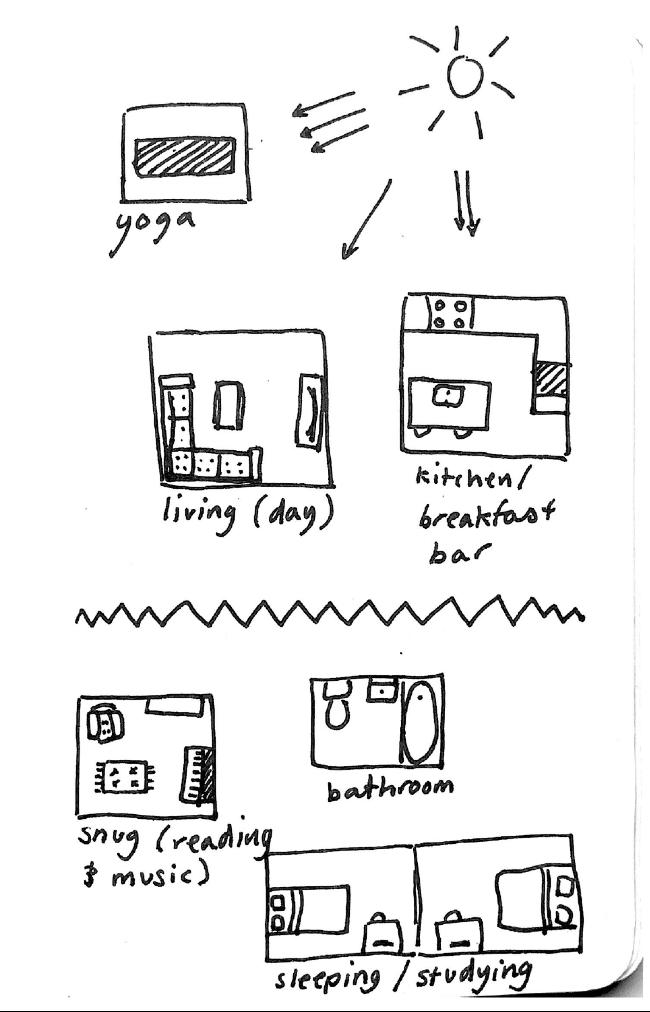 yoga
living (day)
kitchen/
breakfast
bar
snug (reading
& music)
bathroom
sleeping / studying